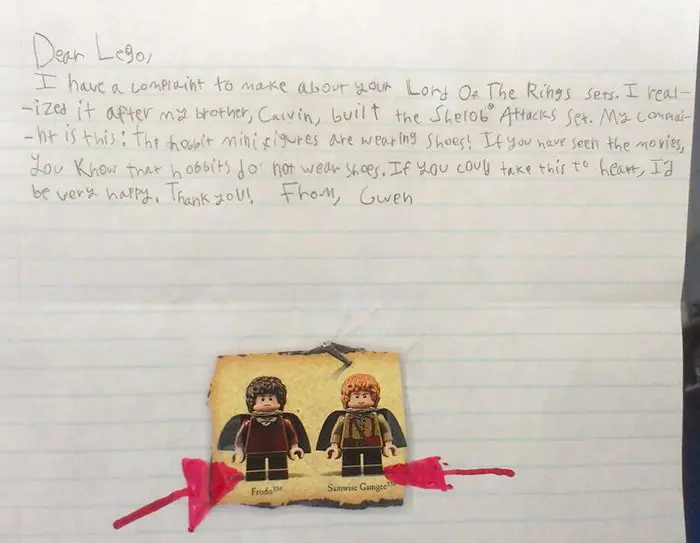 Dear Lego,
I have a complaint to make about your Lord Of The Rings sets. I real-
-ized it after my brother, Calvin, built the Shelob Attacks set. My complai-
-nt is this: The hobbit minifigures are wearing shoes! If you have seen the movies,
you know that hobbits do not wear shoes. If you could take this to heart, I'd
be very happy. Thank you! From, Gwen
Frodo™ Samwise Gamgee™